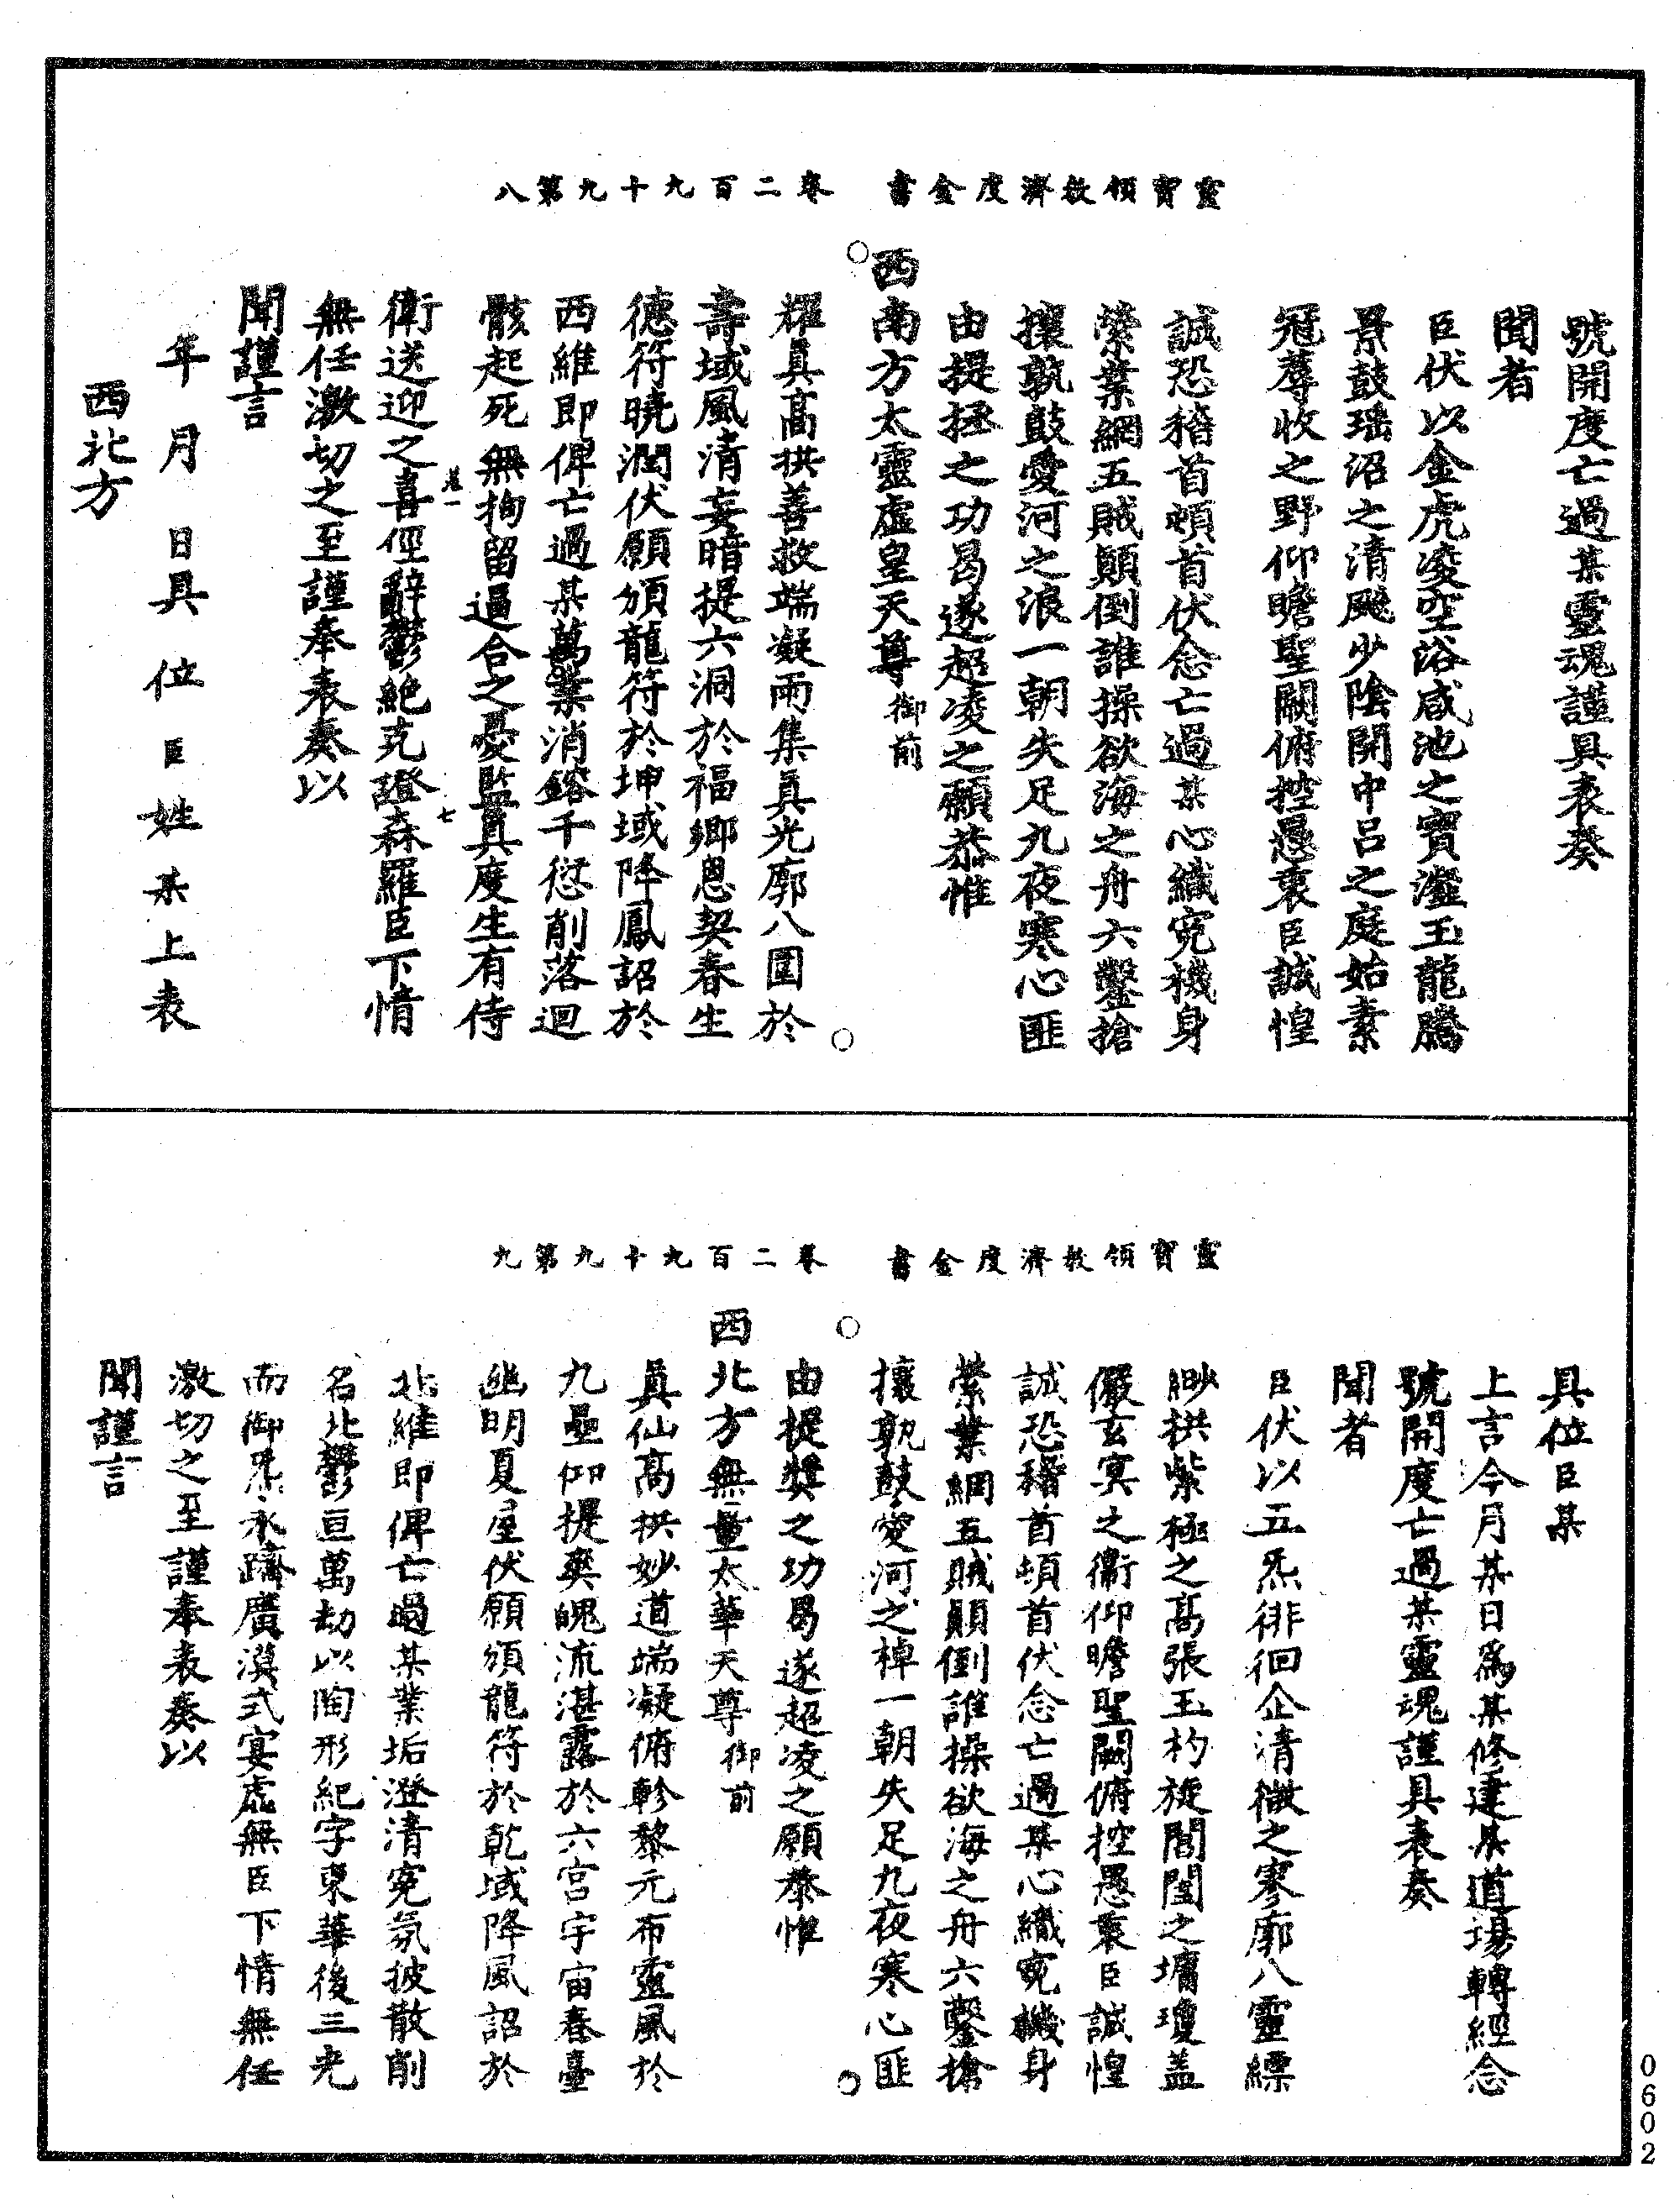 靈寶領教濟度金書　卷二百九十九第八
號開度亡過某靈魂謹具表奏
聞者
臣伏以金虎凌空浴咸池之寶瀣玉龍騰
景鼓瑶沼之清飈少陰開中呂之庭姑素
冠蓐收之野仰瞻聖闕俯控愚衷臣誠惶
誠恐稽首頓首伏念亡過某心織寃機身
縈業網五賊顛倒誰操欲海之舟六鑿搶
攘孰鼓愛河之浪一朝失足九夜寒心匪
由提拯之功曷遂超凌之願恭惟
西南方太靈虛皇天尊御前
耀真高拱善救端凝雨集真光廓八圍於
壽域風清妄暗提六洞於福鄉恩契春生
德符曉潤伏願頒龍符於坤域降鳳詔於
西維即俾亡過某萬業消鎔千愆削落迴
骸起死無拘留逼合之憂監真度生有侍
衛送迎之喜俓辭鬱絶克證森羅臣下情
無任激切之至謹奉表奏以
聞謹言
年　月　日具　位　臣　姓　某　上　表
西北方
靈寶領教濟度金書　卷二百九十九第九
具位臣某
上言今月某日爲某修建某道場轉經念
號開度亡過某靈魂謹具表奏
聞者
臣伏以五炁徘徊企清微之寥廓八靈縹
緲拱紫極之高張玉杓旋閶闔之墉瓊盖
儼玄冥之衞仰瞻聖闕俯控愚衷臣誠惶
誠恐稽首頓首伏念亡過某心織寃機身
縈業網五賊顛倒誰操欲海之舟六鑿搶
攘孰鼓愛河之棹一朝失足九夜寒心匪
由提奬之功曷遂超凌之願恭惟
西北方無量太華天尊御前
真仙高拱妙道端凝俯軫黎元布靈風於
九壘仰提爽魄流湛露於六宫宇宙春臺
幽明夏屋伏願頒龍符於乾域降鳳詔於
北維即俾亡過某業垢澄清寃氛披散削
名北鬱亘萬劫以陶形紀字東華後三光
而御炁永躋廣漠式宴虛無臣下情無任
激切之至謹奉表奏以
聞謹言
0602